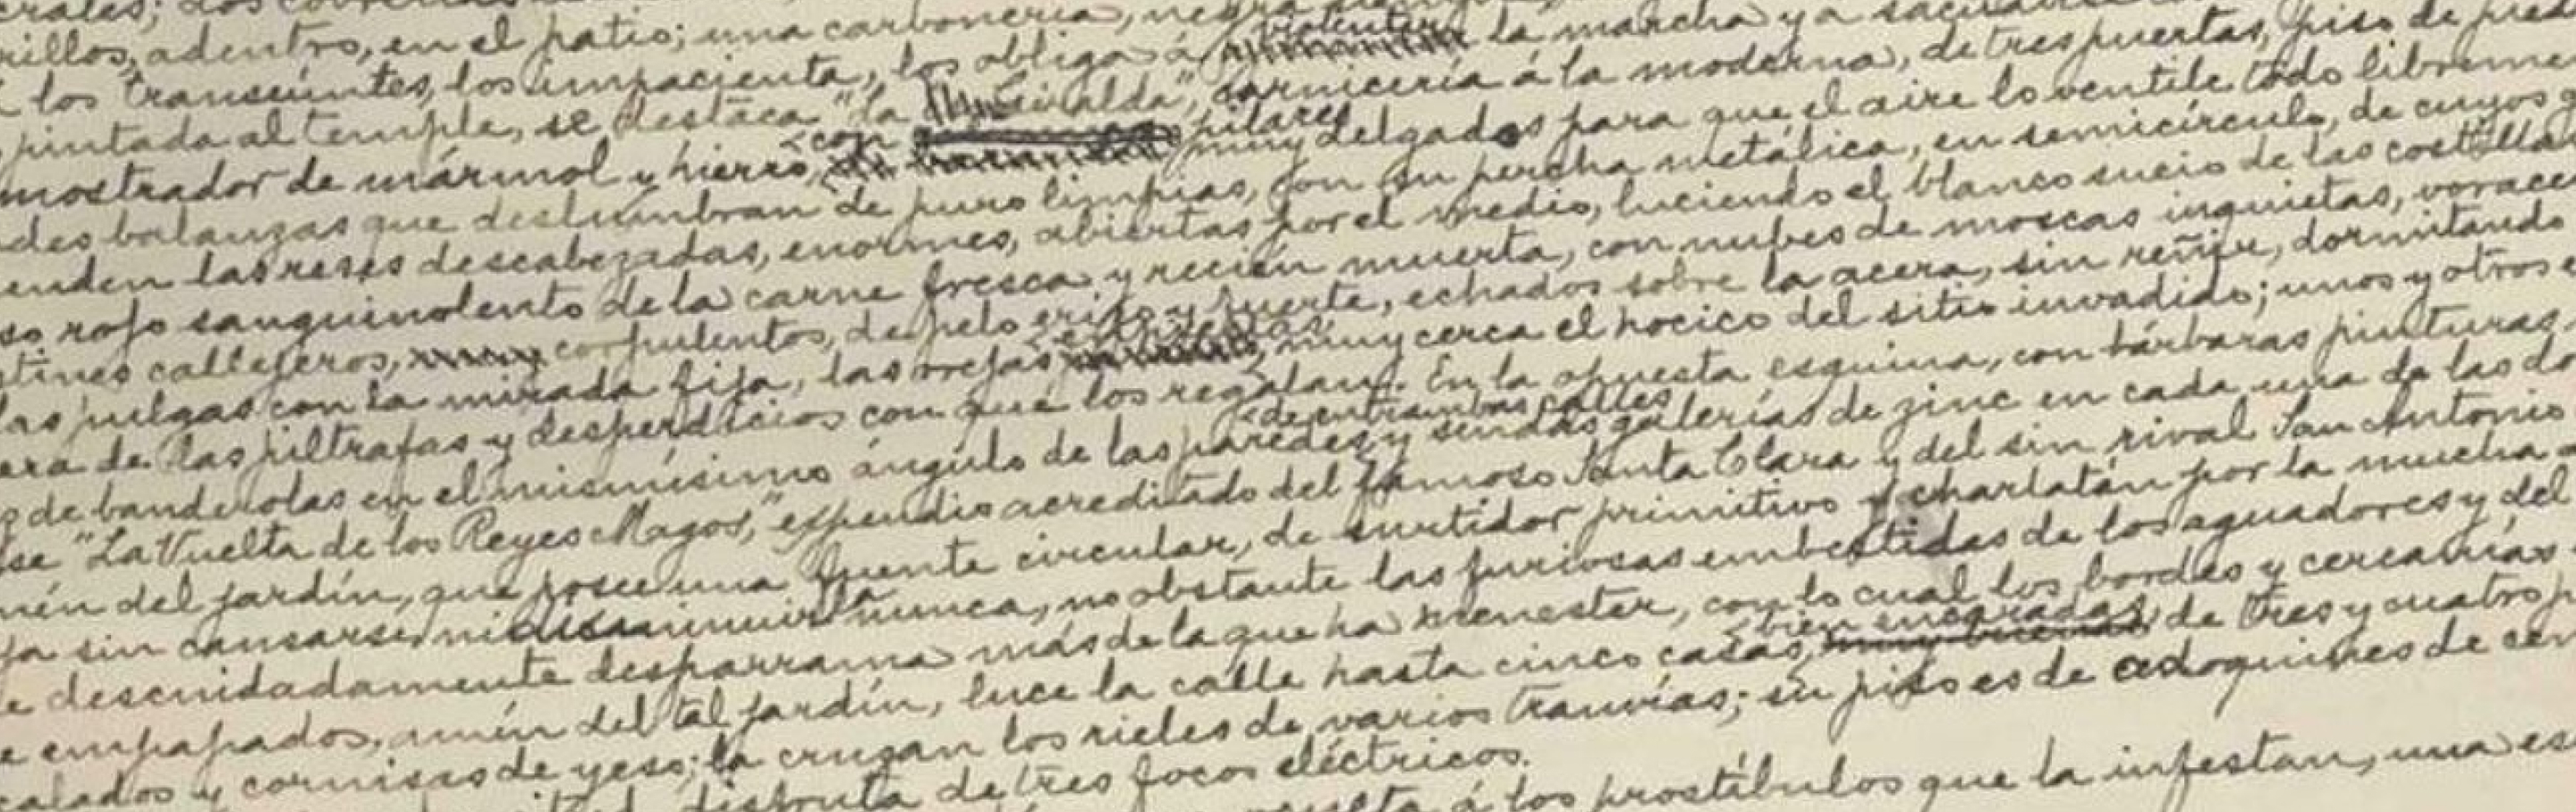 rillos, adentro, en el patio; una carbonería, negra
los transeúntes, los impacienta, los obliga á violentar la marcha y a
pintada al temple, se destaca "La Giralda", carnicería á la moderna, de tres puertas, piso de
mostrador de mármol y hierro, con pilares muy delgados para que el aire lo ventile todo libreme
des balanzas que deslumbran de puro limpias, con su percha metálica, en semicírculo, de cuyos g
enden las reses descabezadas, enormes, abiertas por el medio, luciendo el blanco sucio de las costilla
so rojo sanguinolento de la carne fresca y recién muerta, con nubes de moscas inquietas, vorace
stines callejeros, corpulentos, de pelo erizo y fuerte, echados sobre la acera, sin reñir, dormitando
las pulgas con la mirada fija, las orejas enhiestas, muy cerca el hocico del sitio invadido; unos y otros e
era de las piltrafas y desperdicios con que los regalan. En la opuesta esquina, con bárbaras pinturas
de banderolas en el mismísimo ángulo de las paredes de entrambas calles y sendas galerías de zinc en cada una de las do
se "La Vuelta de los Reyes Magos," expendio acreditado del famoso Santa Clara y del sin rival San Antonio
mén del jardín, que posee una fuente circular, de surtidor primitivo y charlatán por la mucha a
ja sin cansarse ni disminuirla nunca, no obstante las furiosas embestidas de los aguadores y del
e descuidadamente desparrama más de la que ha menester, con lo cual los bordes y cercanías
e empapados. amén del tal jardín, luce la calle hasta cinco casas, bien encaradas, de tres y cuatro p
calados y cornisas de yeso; la cruzan los rieles de varios tranvías; su piso es de adoquines de cem
disfruta de tres focos eléctricos.
á los prostíbulos que la infestan, una es